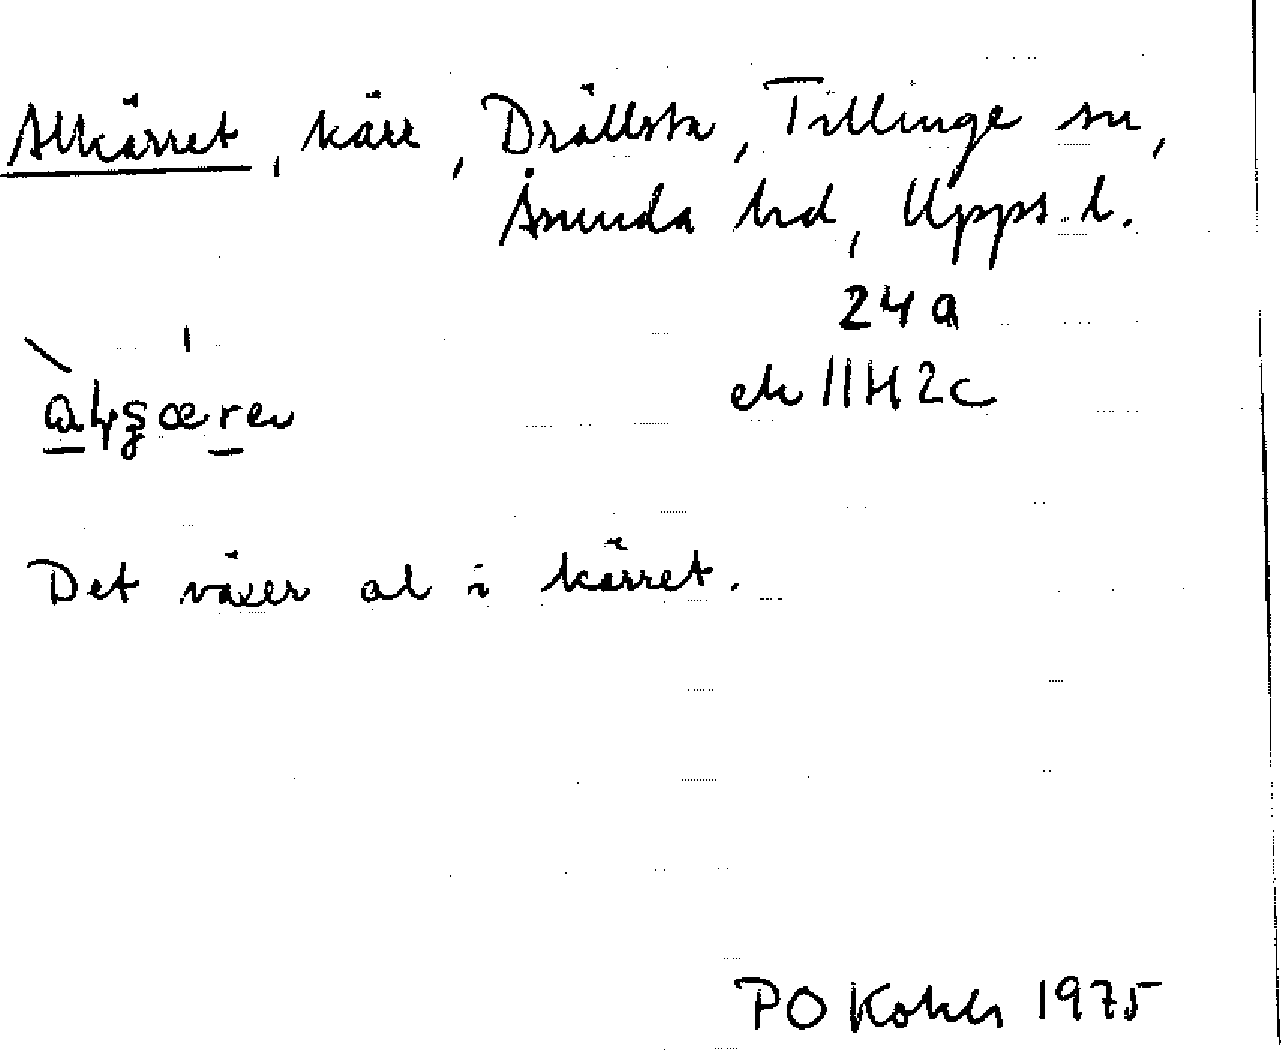 Alkärret, kärr, Drällsta, Tillinge sn,
Åsunda hd, Upps. l.
24 a
ek 11H2c
Det växer al i kärret.
PO 1975